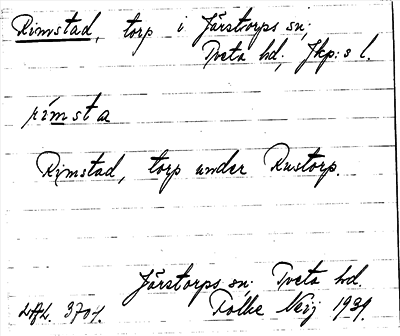 Rimstad, torp i Järstorps sn;
Tveta hd; Jkp:s l.
rimsta
Rimstad, torp under Rustorp.
Järstorps sn. Tveta hd.
LAL. 3704. Folke Neij 1939.